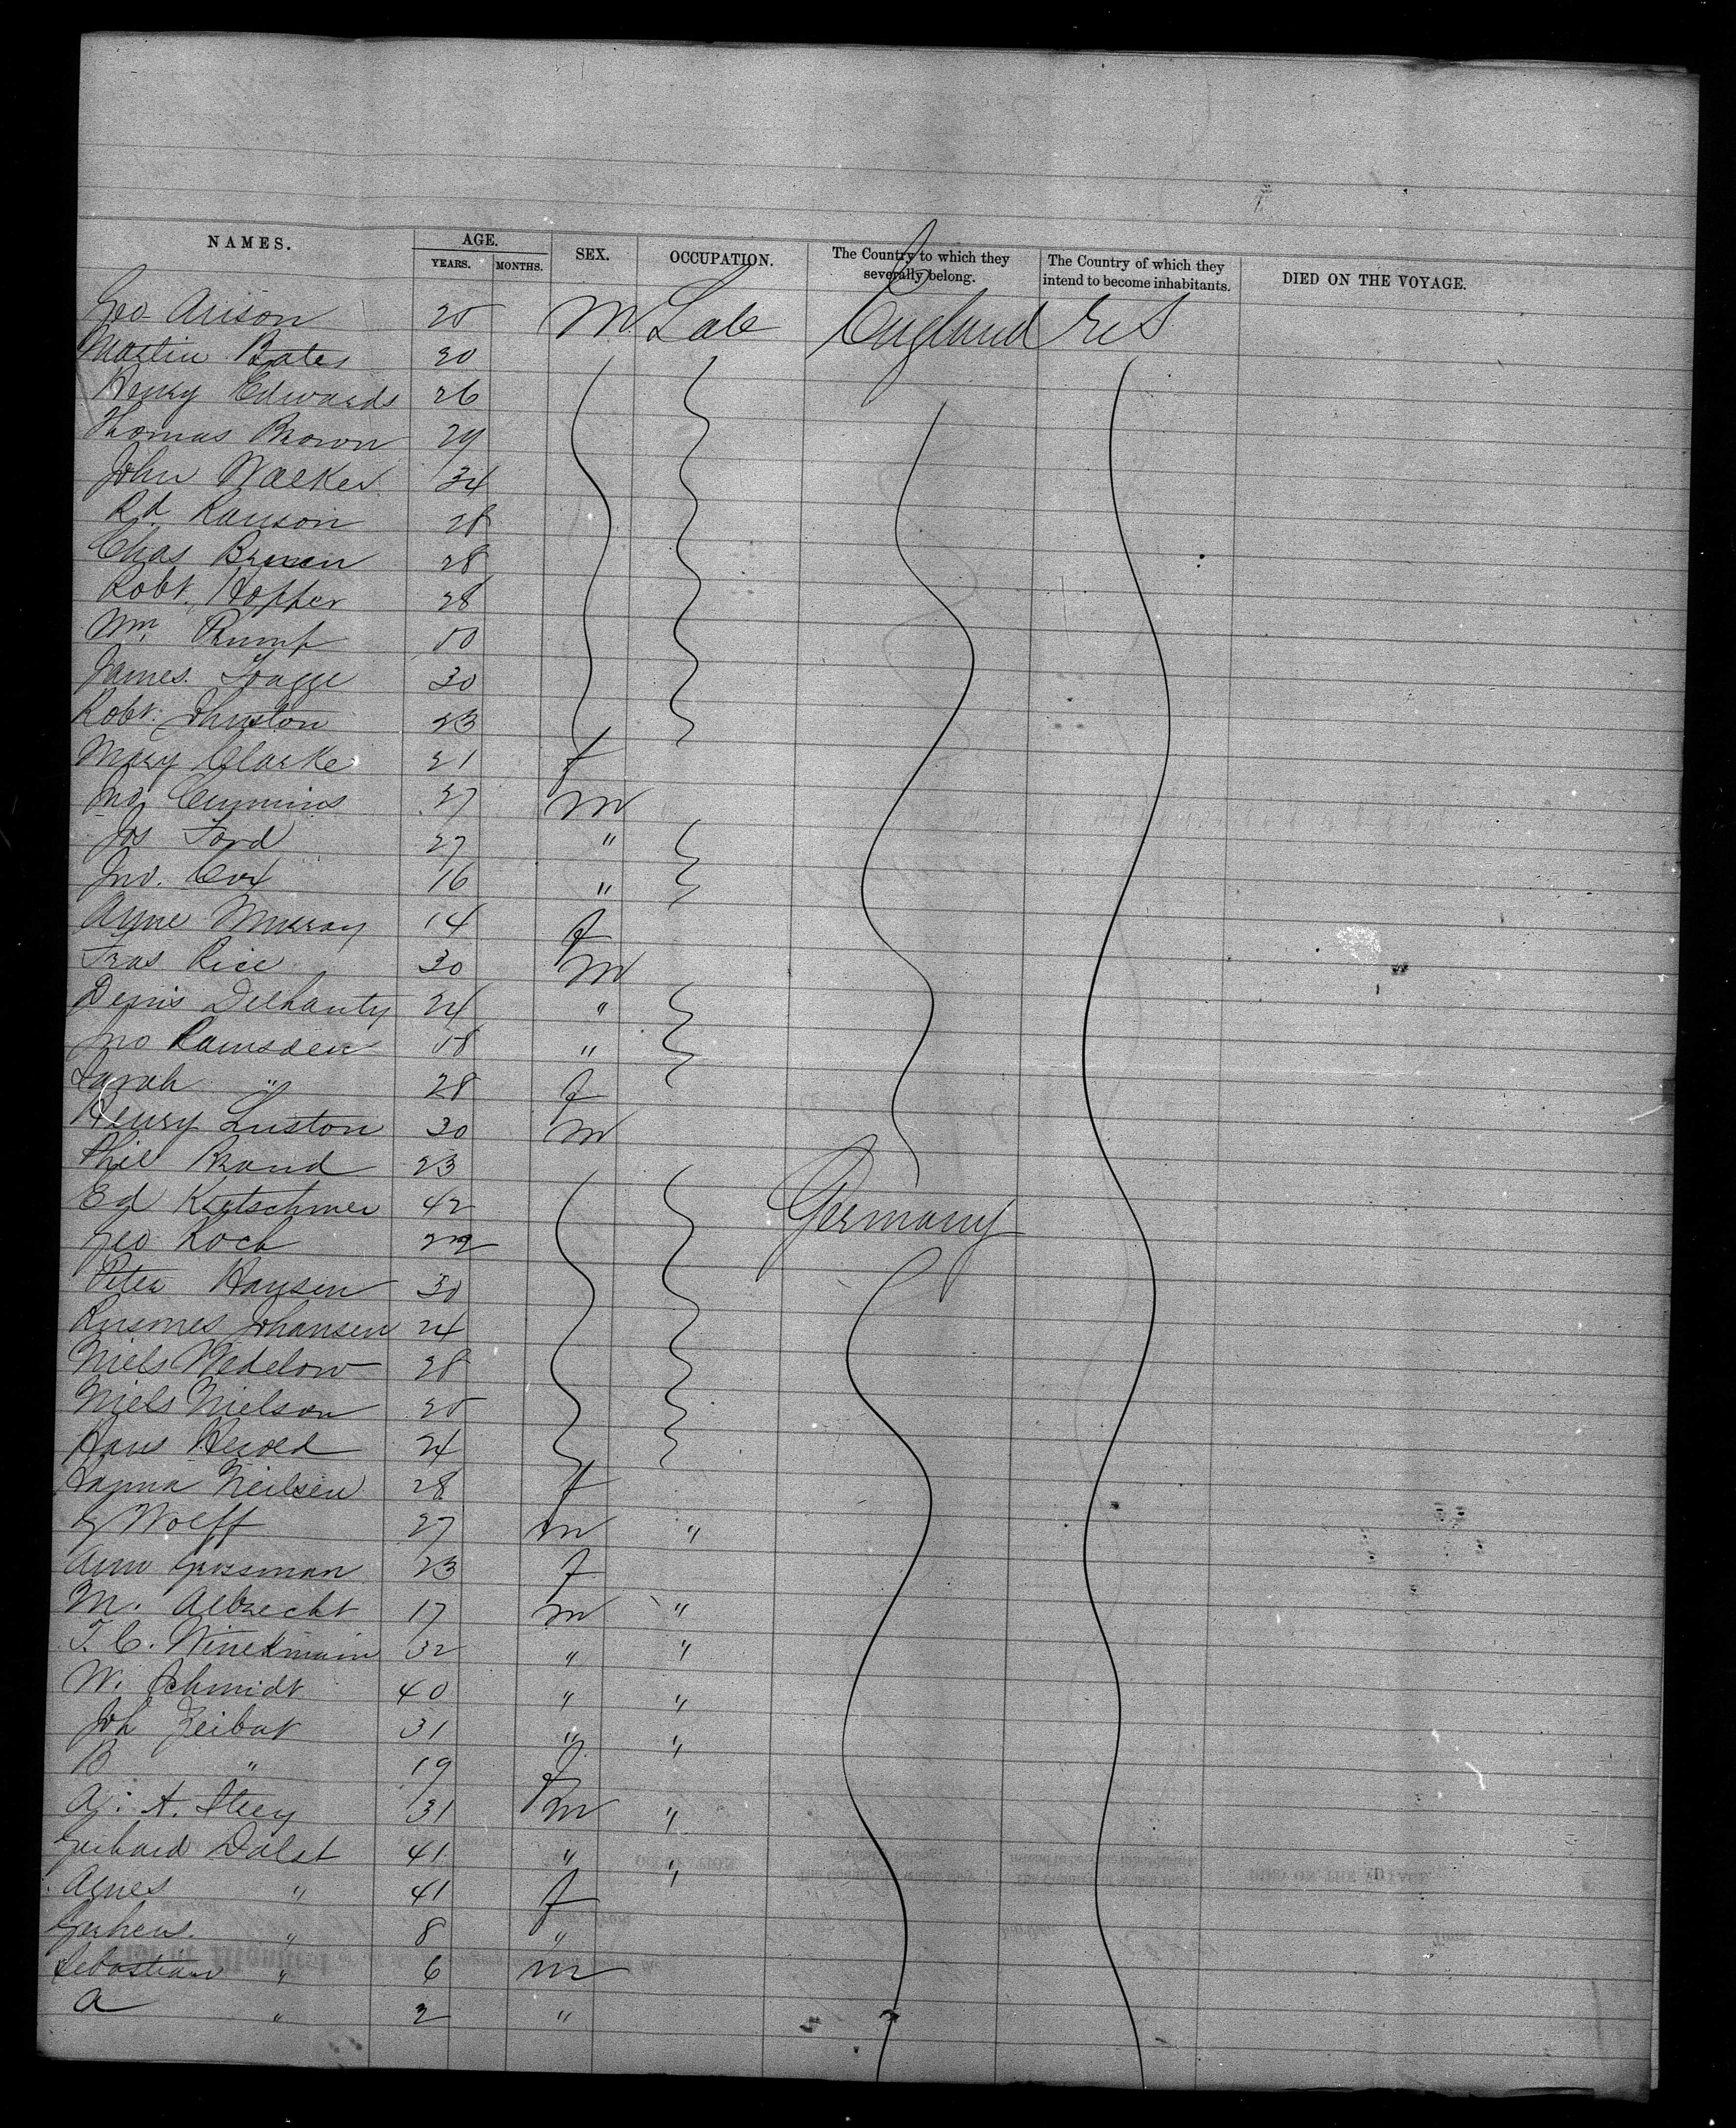 NAMES. AGE. SEX. OCCUPATION. The Country to which they severally belong. The Country of which they intend to become inhabitants. DIED ON THE VOYAGE.
YEARS. MONTHS.
Geo Arison 20 M Lab England U S
Martin Bates 20
Henry Edwards 26
Thomas Brown 29
John Walker 34
Rd Ranson 28
Chas Brown 28
Robt. Hopper 28
Wm. Crump
James 30
Robt. Johnston 23
Mary Clarke 21 f
Jno. Cummins 27 M
Jos Ford 27 "
Jno. Cox 16 "
Anne Murray 14 f
Fras Rice 30 M
Denis Delhanty 24 "
Jno Ramsden "
Sarah " 28 f
Henry Luston 30 M
Phil Brand 23
Ed Kretschmer 42 Germany
Geo Koch 22
Peter Hansen 30
Rasmes Johansen 24
Niels Nedelow 28
Niels Nielson 20
Hans Herold 24
Neilsen 28 f
Wolff 27 m "
Ann Grossman 23 f
M. Albrecht 17 m "
T. C. Winekmann 32 " "
W. Schmidt 40 " "
Joh Zeibat 31 " "
B " 19 f
A. A. 31 m "
Gerhard Dalst 41 " "
Agnes " 41 f
" 8 "
Sebastian " 6 m
A " 2 "